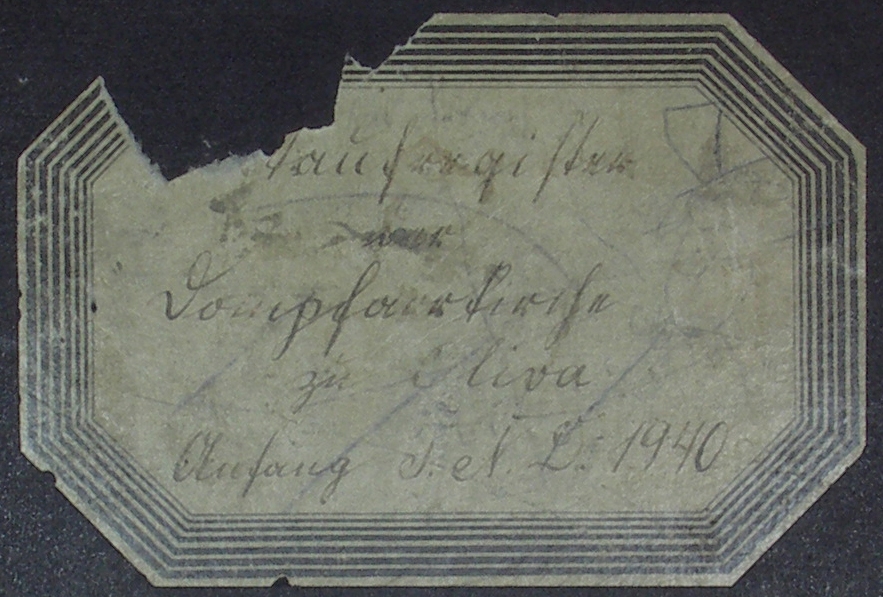 Taufregister
der
Dompfarrkirche
zu Oliva
Anfang J. A. D. 1940